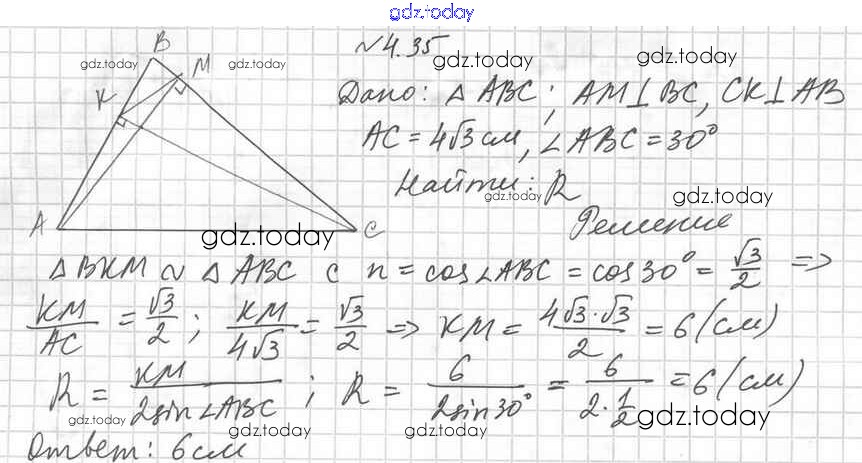 gdz.today
№4.35
B
gdz.today M gdz.today gdz.today
K Дано: △ABC; AM⊥BC, CK⊥AB
gdz.today AC = 4√3 см, ∠ABC = 30°
Найти: R
gdz.today gdz.today
A C Решение
gdz.today
△BKM ∼ △ABC с k = cos∠ABC = cos30° = √3/2 =>
KM/AC = √3/2; KM/4√3 = √3/2 => KM = 4√3·√3/2 = 6 (см)
R = KM/2sin∠ABC; R = 6/2sin30° = 6/2·1/2 = 6 (см)
gdz.today gdz.today gdz.today gdz.today
Ответ: 6 см